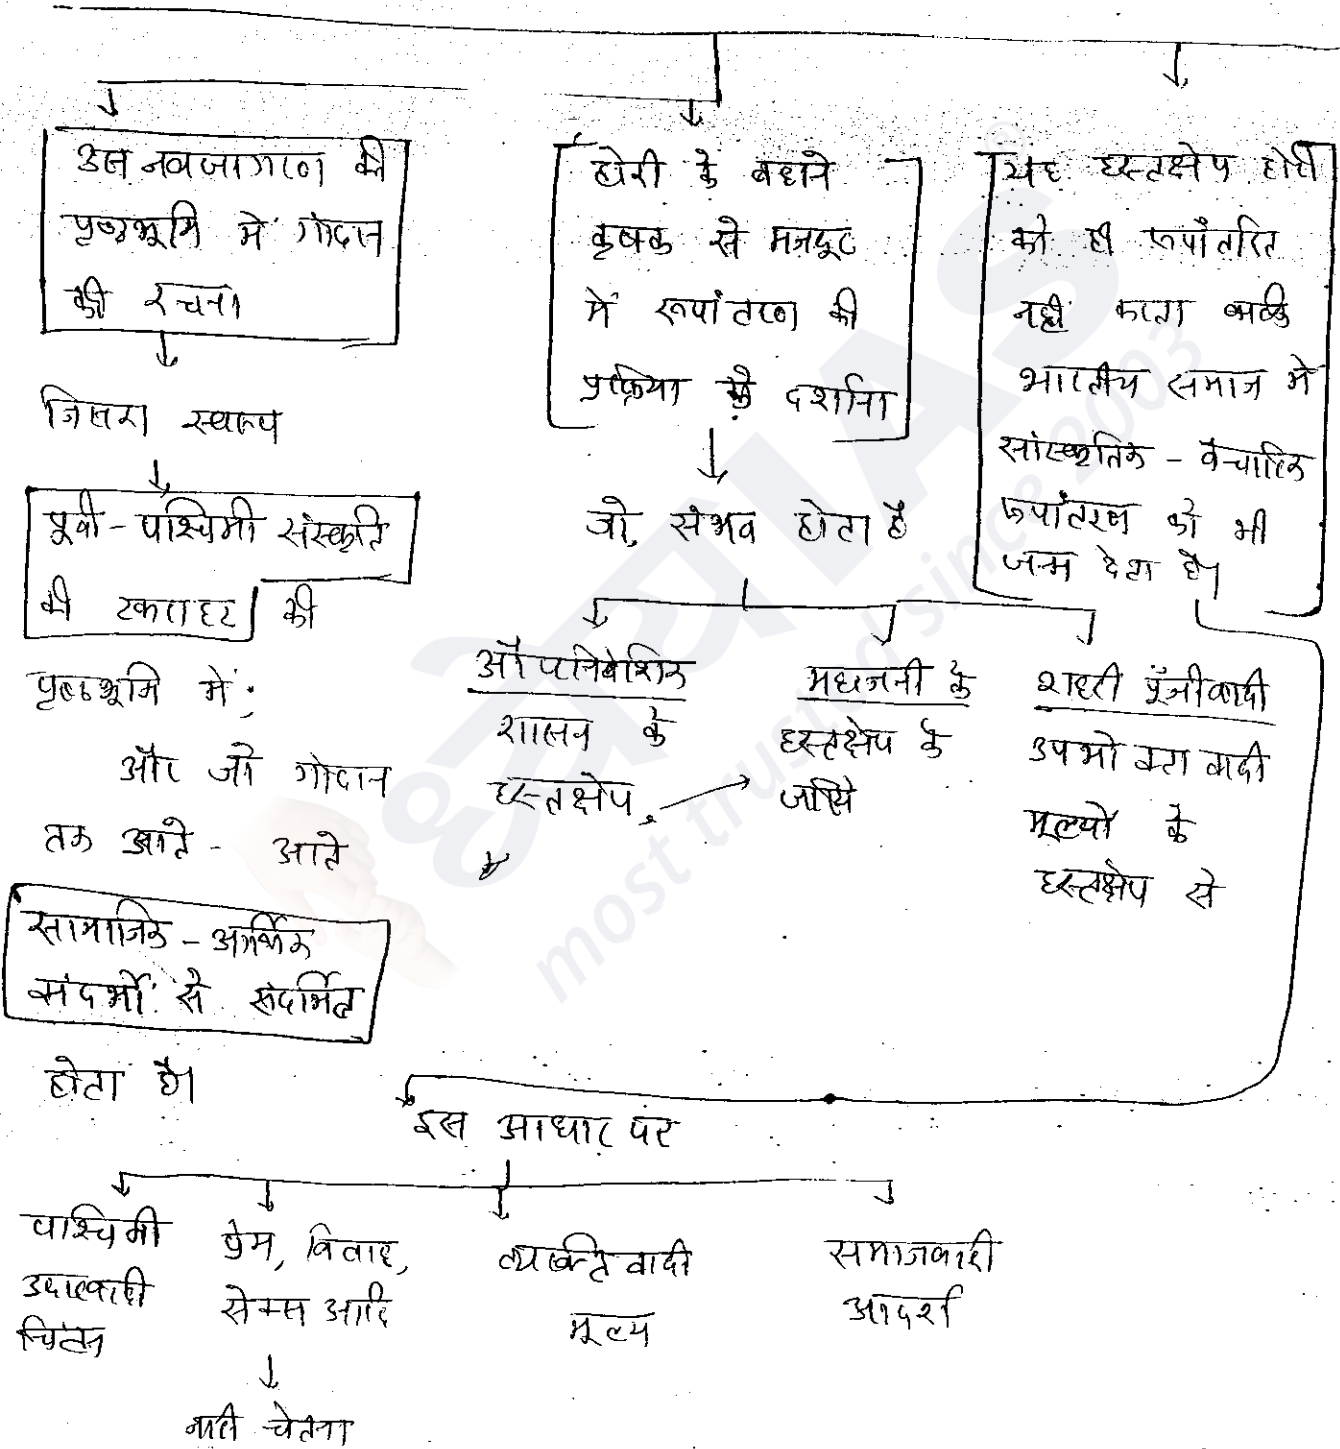 उस नवजागरण की
पृष्ठभूमि में गोदान
की रचना
जिसका स्वरूप
पूर्वी - पश्चिमी संस्कृति
की टकराहट की
पृष्ठभूमि में;
और जो गोदान
तक आते - आते
सामाजिक - आर्थिक
संदर्भों से संदर्भित
होता है।
होरी के बहाने
कृषक से मजदूर
में रूपांतरण की
प्रक्रिया को दर्शाना
जो, संभव होता है
औपनिवेशिक
शासन के
हस्तक्षेप,
महाजनी के
हस्तक्षेप के
जरिये
शहरी पूँजीवादी
उपभोक्तावादी
मूल्यों के
हस्तक्षेप से
यह हस्तक्षेप होरी
को ही रूपांतरित
नहीं करता बल्कि
भारतीय समाज में
सांस्कृतिक - वैचारिक
रूपांतरण को भी
जन्म देता है।
इस आधार पर
पाश्चिमी
उदारवादी
चिंतन
प्रेम, विवाह,
सेक्स आदि
नारी चेतना
व्यक्तिवादी
मूल्य
समाजवादी
आदर्श
ध्येय IAS
most trusted since 2003